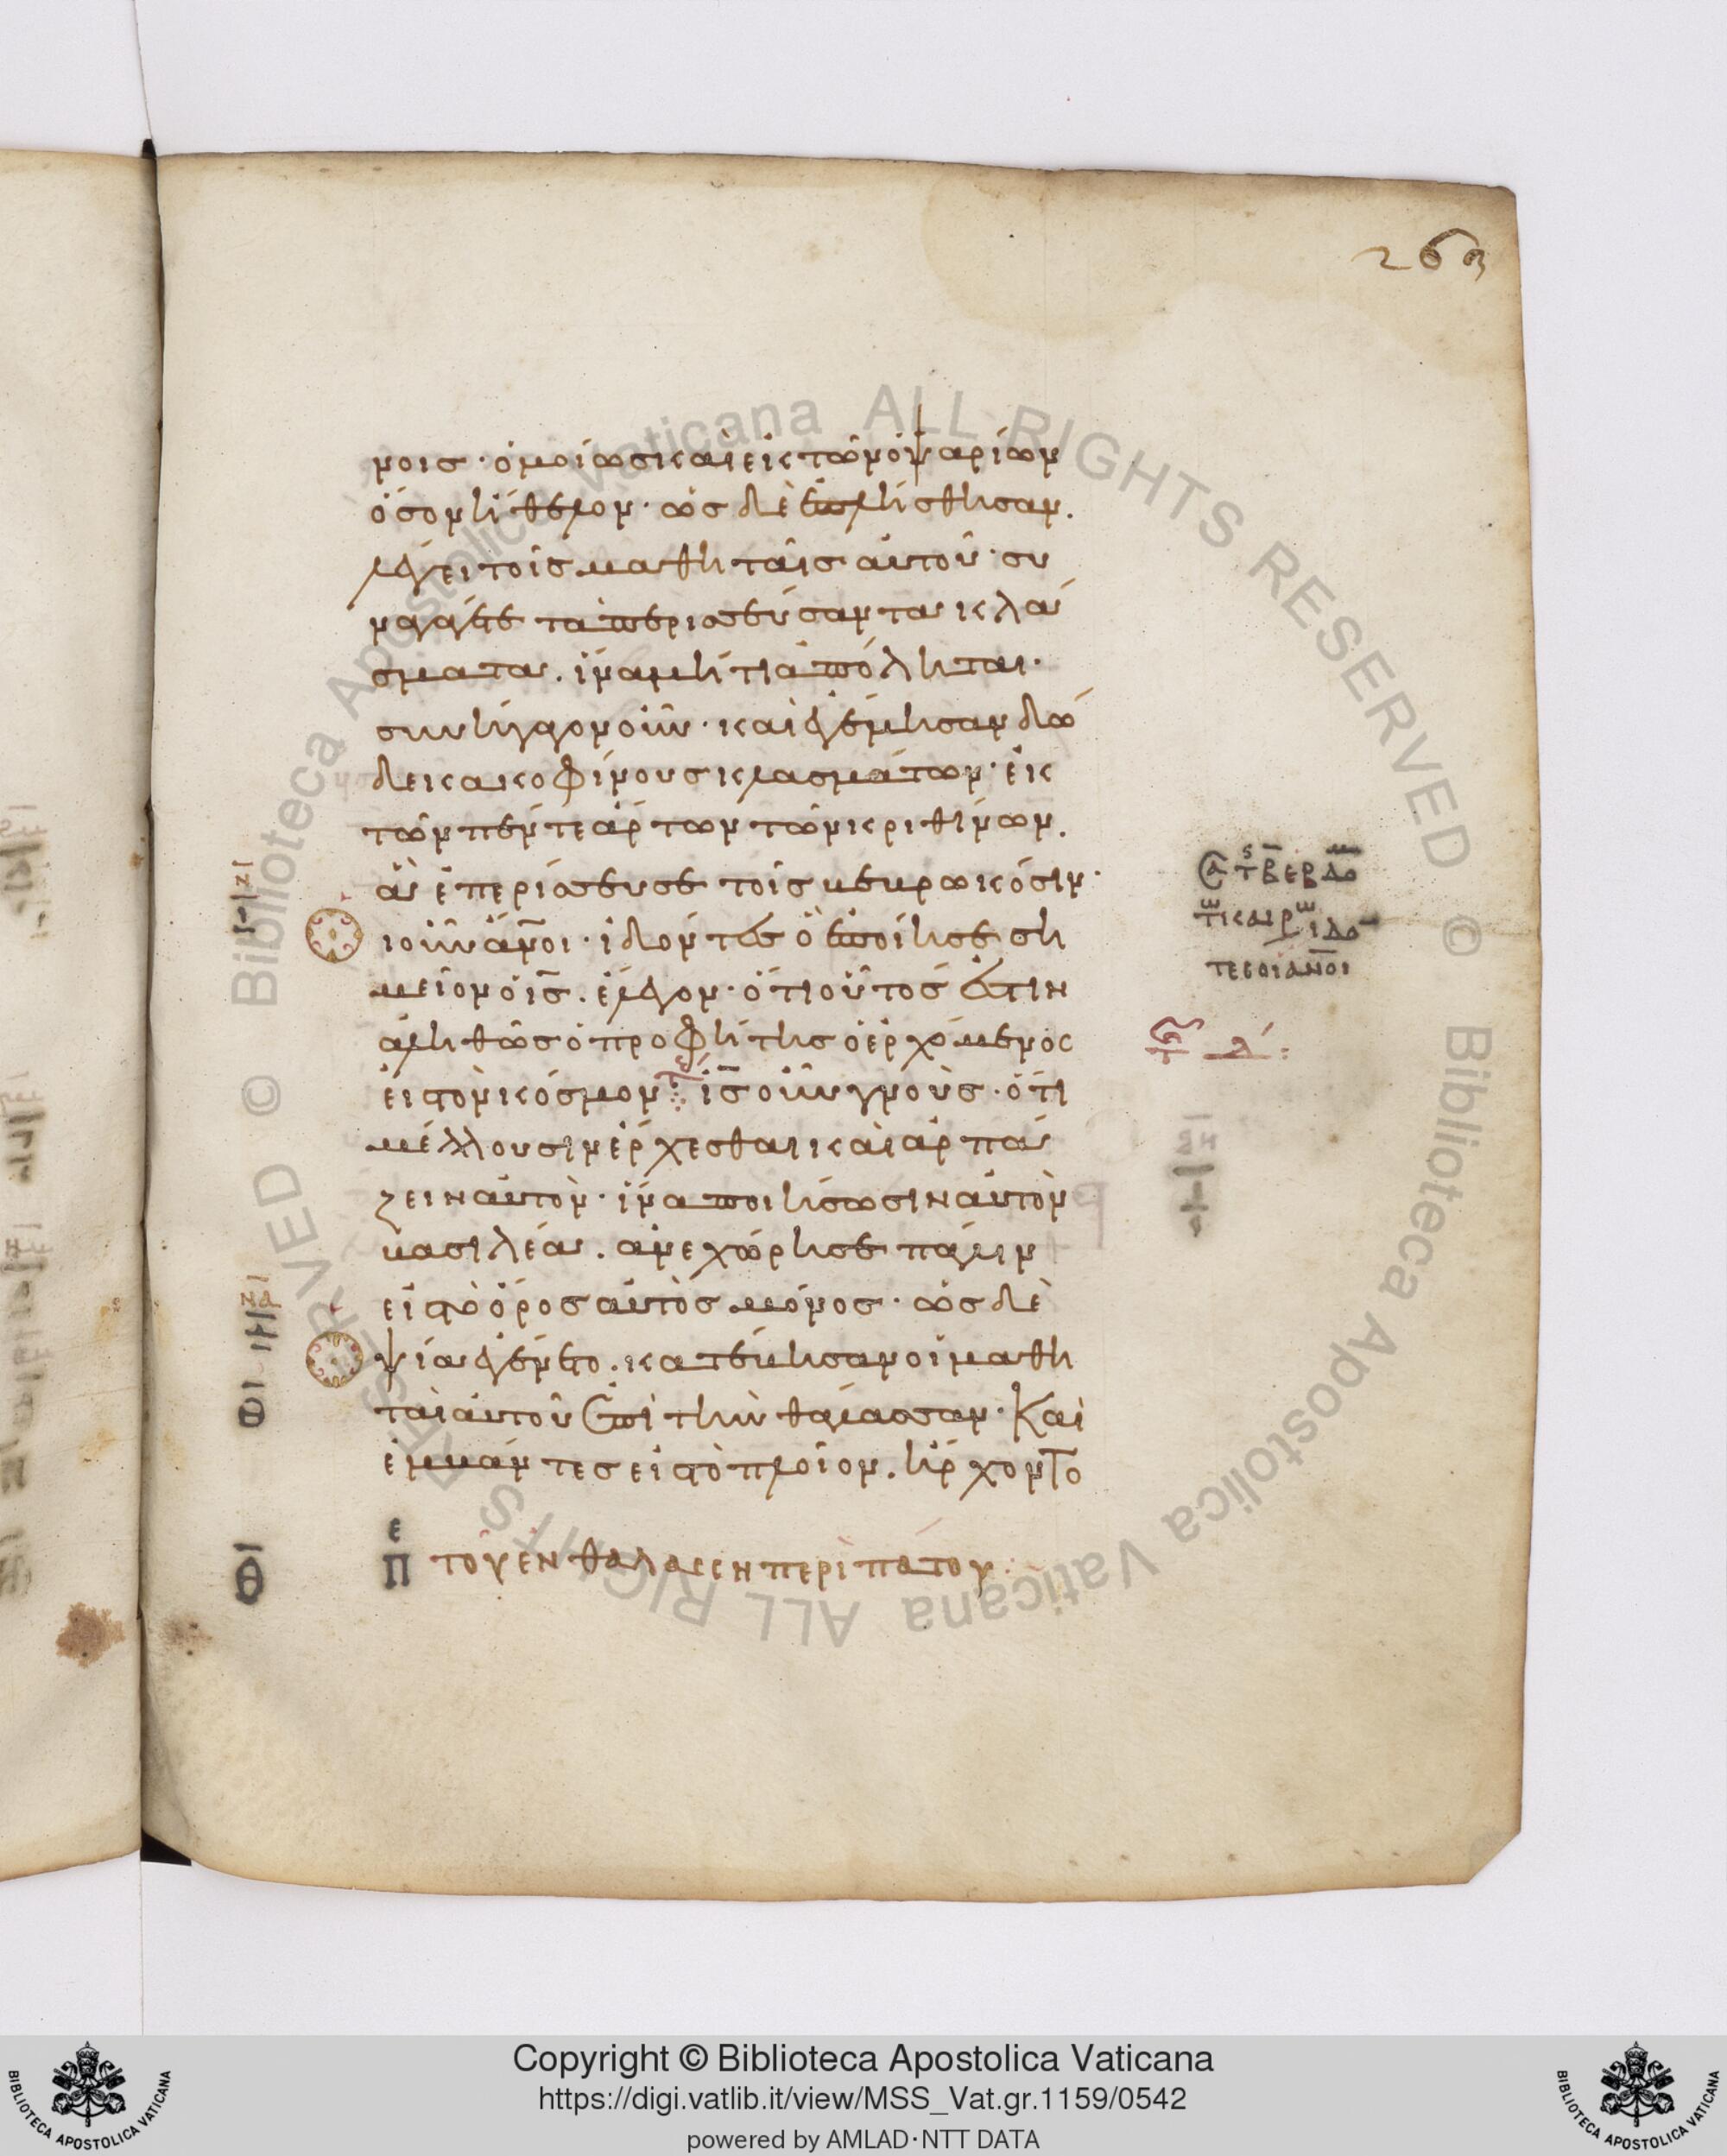 263
νοις · ὁμοίως καὶ ἐκ τῶν ὀψαρίων
ὅσον ἤθελον · ὡς δὲ ἐπλήσθησαν.
λέγει τοῖς μαθηταῖς αὐτοῦ · συ
ναγάγετε τὰ περισσεύσαντα κλά
σματα. ἵνα μή τι ἀπόληται ·
συνήγαγον οὖν · καὶ ἐγέμισαν δώ
δεκα κοφίνους κλασμάτων · ἐκ
τῶν πέντε ἄρτων τῶν κριθίνων.
ἃ ἐπερίσσευσε τοῖς βεβρωκόσιν ·
οἱ οὖν ἄνοι · ἰδόντες ὃ ἐποίησε ση
μεῖον ὁ ις. ἔλεγον · ὅτι οὗτός ἐστιν
ἀληθῶς ὁ προφήτης ὁ ἐρχόμενος
εἰς τὸν κόσμον ις οὖν γνοὺς · ὅτι
μέλλουσιν ἔρχεσθαι καὶ ἁρπά
ζειν αὐτὸν · ἵνα ποιήσωσιν αὐτὸν
βασιλέα. ἀνεχώρησε πάλιν
εἰς τὸ ὄρος αὐτὸς μόνος · ὡς δὲ
ὀψία ἐγένετο. κατέβησαν οἱ μαθη
ταὶ αὐτοῦ ἐπὶ τὴν θάλασσαν · Καὶ
ἐμβάντες εἰς τὸ πλοῖον. ἤρχοντο
θ ε Π τοῦ ἐν θαλάσση περιπάτου
τῶ καιρῶ ιδό
τες οἱ ανοι
Copyright © Biblioteca Apostolica Vaticana
https://digi.vatlib.it/view/MSS_Vat.gr.1159/0542
powered by AMLAD·NTT DATA
BIBLIOTECA APOSTOLICA VATICANA
BIBLIOTECA APOSTOLICA VATICANA
© Biblioteca Apostolica Vaticana ALL RIGHTS RESERVED © Biblioteca Apostolica Vaticana ALL RIGHTS RESERVED